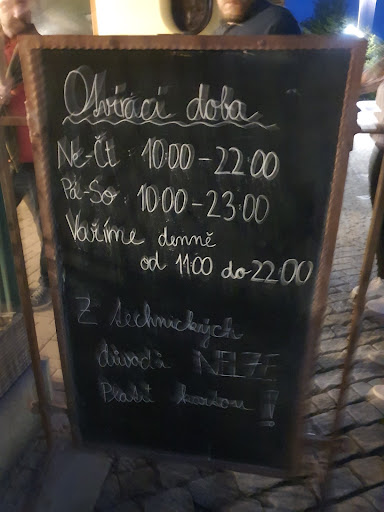 Otvírací doba
Ne-Čt: 10:00-22:00
Pá-So: 10:00-23:00
Vaříme denně
od 11:00 do 22:00
Z technických
důvodů NELZE
Platit kartou!